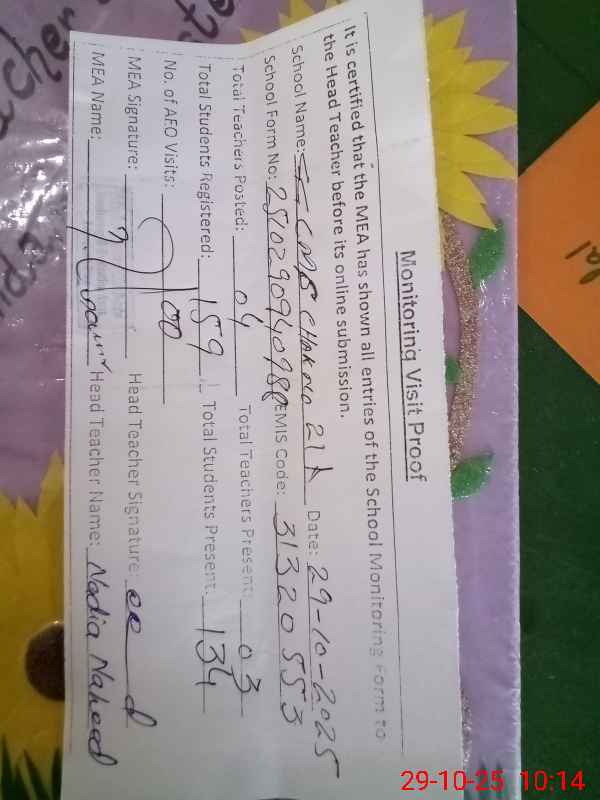 Monitoring Visit Proof
It is certified that the MEA has shown all entries of the School Monitoring Form to
the Head Teacher before its online submission.
School Name: CMS CHAK NO 21 Date: 29-10-2025
School Form No: EMIS Code: 31320553
Total Teachers Posted: 04 Total Teachers Present: 03
Total Students Registered: 159 Total Students Present: 134
No. of AEO Visits: 00
MEA Signature: Head Teacher Signature:
MEA Name: Head Teacher Name: Nadia Naheed
acher
29-10-25 10:14